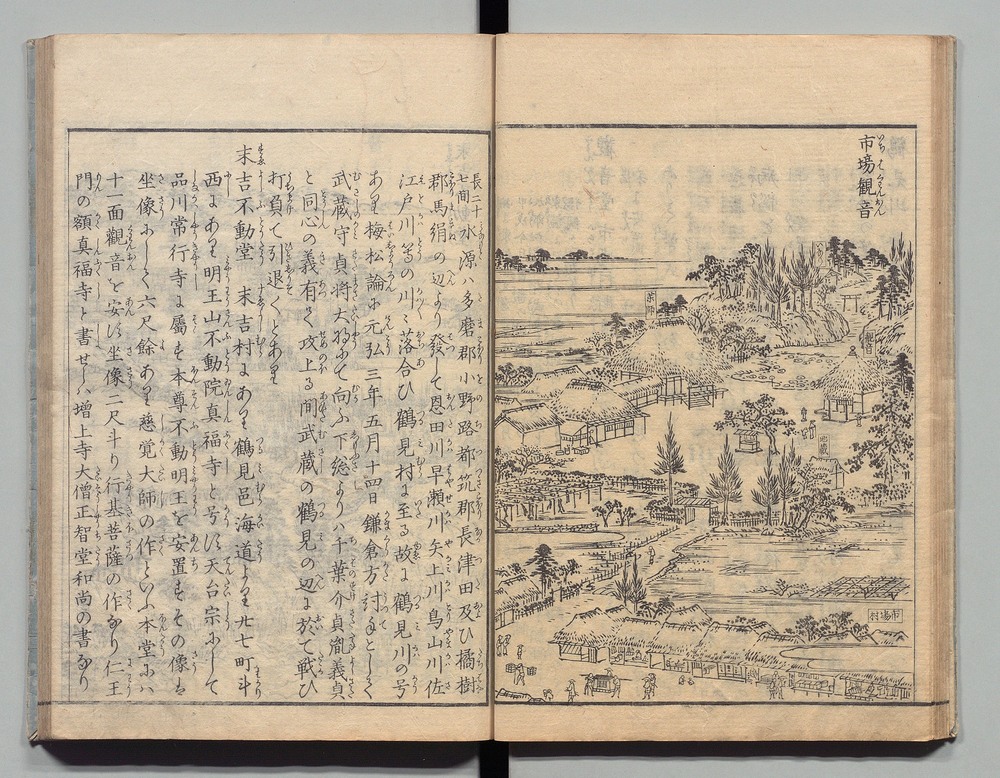 市場観音
薬師
地蔵
市場村
長二十
七間
水源ハ多磨郡小野路都筑郡長津田及ひ橘樹
郡馬絹の辺より発して恩田川早瀬川矢上川鳥山川佐
江戸川等の川〻落合ひ鶴見村に至る故に鶴見川の号
あり梅松論に元弘三年五月十四日鎌倉方討手として
武蔵守貞将大将にて向ふ下総よりハ千葉介貞胤義貞
と同心の義有て攻上る間武蔵の鶴見の辺に於て戦ひ
打負て引退くとあり
末吉不動堂 末吉村にあり鶴見邑海道より北七町斗
西にあり明王山不動院真福寺と号す天台宗にして
品川常行寺に属す本尊不動明王を安置もその像ハ
坐像にして六尺餘あり慈覚大師の作といふ本堂にハ
十一面觀音を安す坐像二尺斗り行基菩薩の作なり仁王
門の額真福寺と書せしハ増上寺大僧正智堂和尚の書なり